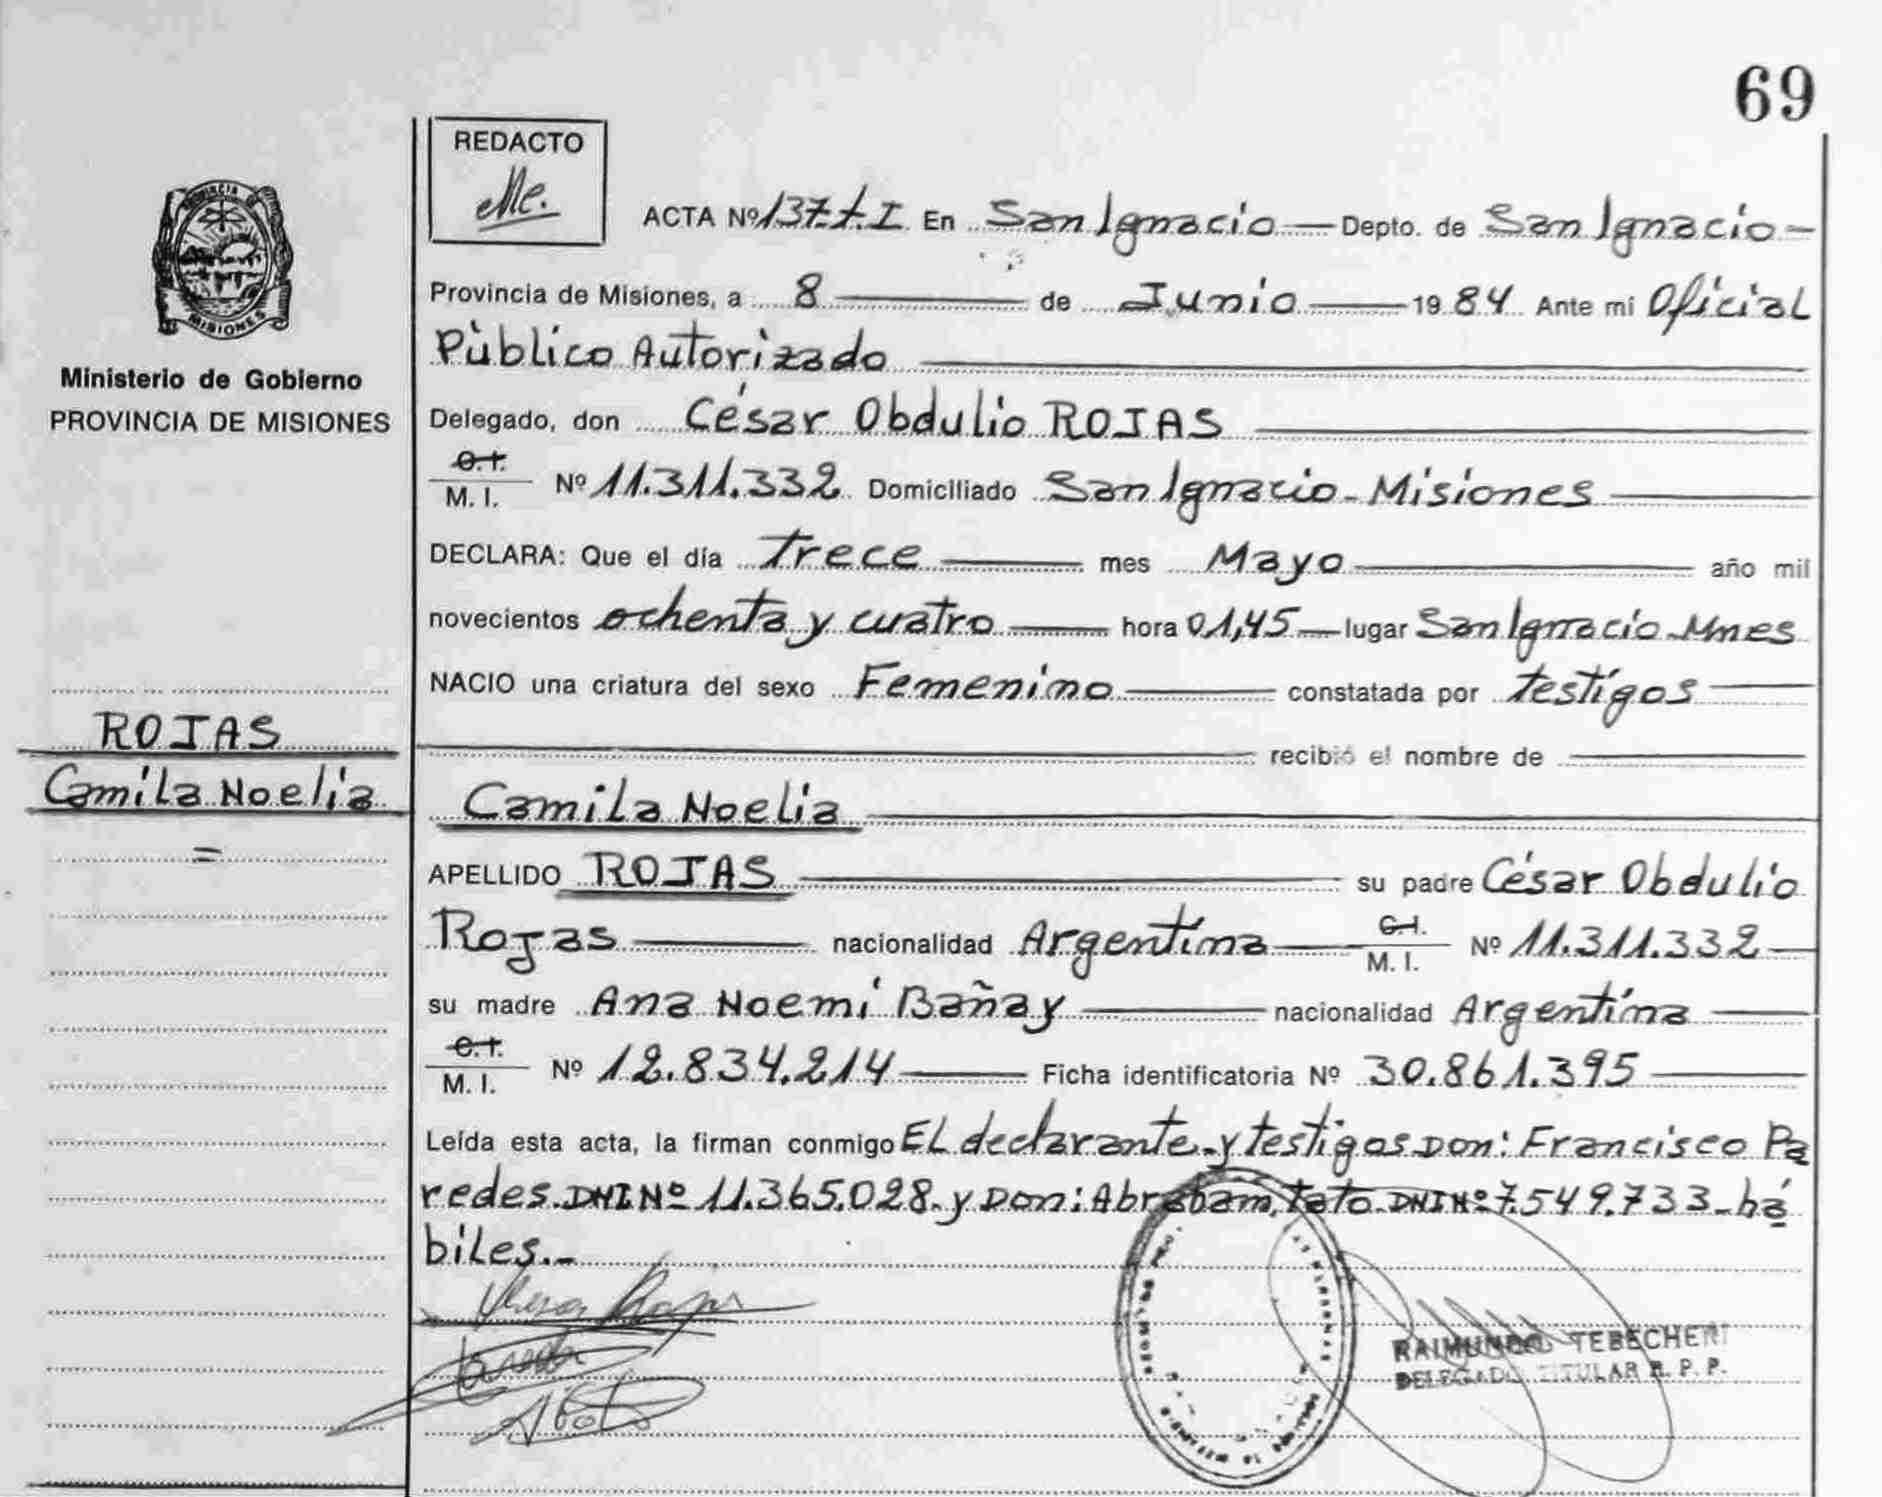 69
REDACTO
PROVINCIA DE
MISIONES
Ministerio de Gobierno
PROVINCIA DE MISIONES
ROJAS
Camila Noelia
=
ACTA Nº 137.T.I. En San Ignacio — Depto. de San Ignacio —
Provincia de Misiones, a 8 — de Junio — 1984 Ante mi Oficial
Público Autorizado —
Delegado, don César Obdulio ROJAS —
C.I. M. I. Nº 11.311.332 Domiciliado San Ignacio - Misiones —
DECLARA: Que el día Trece — mes Mayo — año mil
novecientos ochenta y cuatro — hora 01,45 — lugar San Ignacio Mnes
NACIO una criatura del sexo Femenino — constatada por testigos —
— recibió el nombre de —
Camila Noelia —
APELLIDO ROJAS — su padre César Obdulio
Rojas — nacionalidad Argentina — C.I. M. I. Nº 11.311.332 —
su madre Ana Noemí Bañay — nacionalidad Argentina —
C.I. M. I. Nº 12.834.214 — Ficha identificatoria Nº 30.861.395 —
Leída esta acta, la firman conmigo EL declarante y testigos Don: Francisco Pa
redes. DNI Nº 11.365.028. y Don: Abraham Tato DNI Nº 7.549.733 - há
biles.-
RAIMUNDO TEBECHERI
DELEGADO TITULAR R. P. P.